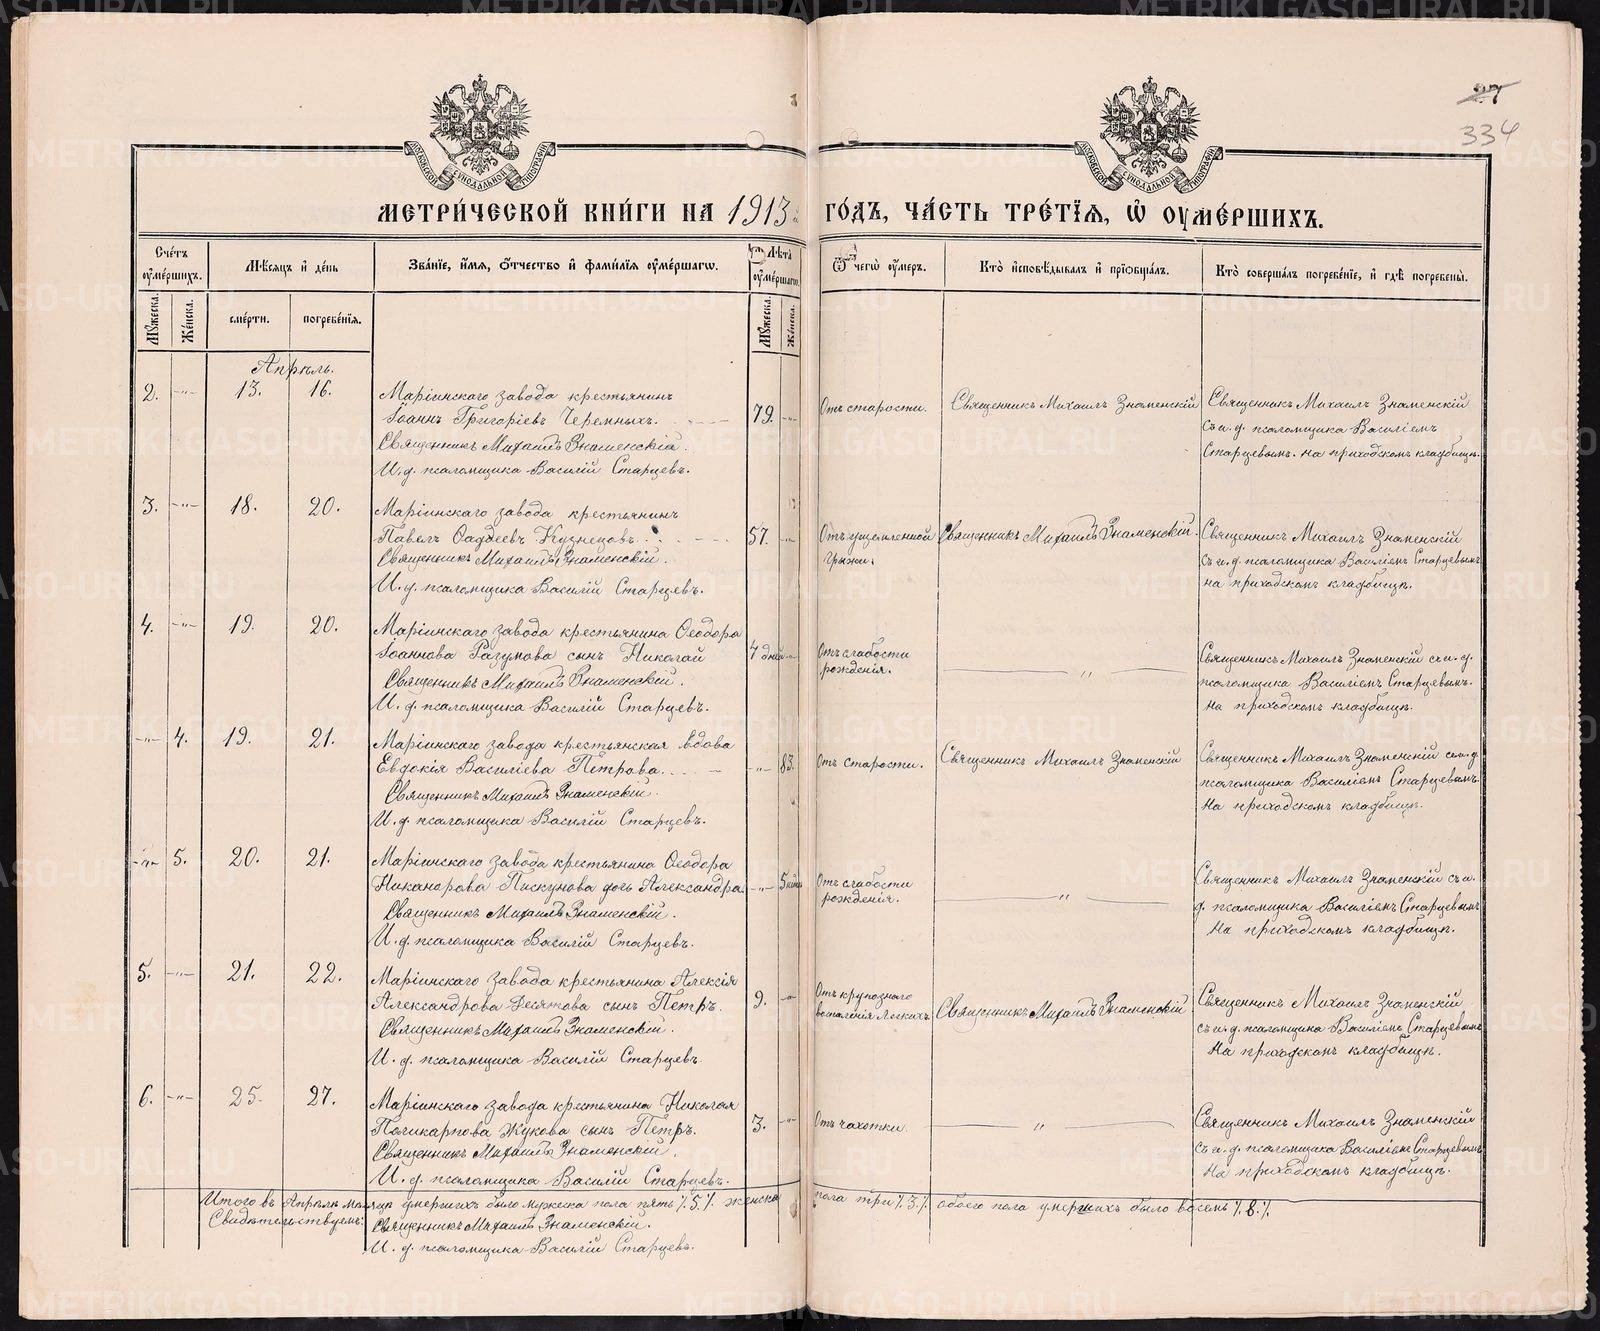 27
334
МЕТРИЧЕСКОЙ КНИГИ НА 1913 ГОДЪ, ЧАСТЬ ТРЕТІЯ, Ѽ ОУМЕРШИХЪ.
Счетъ оумершихъ.
Мужеска.
Женска.
Мѣсяцъ и день
смерти.
погребенія.
Званіе, имя, отчество и фамилія оумершаго.
Лѣта оумершаго.
Мужеска.
Женска.
Ѿ чегѡ оумеръ.
Кто исповѣдывалъ и пріобщалъ.
Кто совершалъ погребеніе, и гдѣ погребены.
Апрѣль.
2. -"- 13. 16.
Маріинскаго завода крестьянинъ
Іоаннъ Григоріевъ Черемныхъ.
Священникъ Михаилъ Знаменскій.
И. д. псаломщика Василій Старцевъ.
79. -"-
Отъ старости.
Священникъ Михаилъ Знаменскій
Священникъ Михаилъ Знаменскій
съ и. д. псаломщика Василіемъ
Старцевымъ. на приходскомъ кладбищѣ.
3. -"- 18. 20.
Маріинскаго завода крестьянинъ
Павелъ Ѳаддеевъ Кузнецовъ.
Священникъ Михаилъ Знаменскій.
И. д. псаломщика Василій Старцевъ.
57. -"-
Отъ ущемленной
грыжи.
Священникъ Михаилъ Знаменскій.
Священникъ Михаилъ Знаменскій
съ и. д. псаломщика Василіемъ Старцевымъ
на приходскомъ кладбищѣ.
4. -"- 19. 20.
Маріинскаго завода крестьянина Ѳеодора
Іоаннова Разумова сынъ Николай
Священникъ Михаилъ Знаменскій.
И. д. псаломщика Василій Старцевъ.
4 дней -"-
Отъ слабости
рожденія.
"
Священникъ Михаилъ Знаменскій съ и. д.
псаломщика Василіемъ Старцевымъ.
на приходскомъ кладбищѣ.
-"- 4. 19. 21.
Маріинскаго завода крестьянская вдова
Евдокія Василіева Петрова.
Священникъ Михаилъ Знаменскій.
И. д. псаломщика Василій Старцевъ.
-"- 83.
Отъ старости.
Священникъ Михаилъ Знаменскій
Священникъ Михаилъ Знаменскій съ и. д.
псаломщика Василіемъ Старцевымъ
На приходскомъ кладбищѣ.
-"- 5. 20. 21.
Маріинскаго завода крестьянина Ѳеодора
Никанорова Пискунова дочь Александра
Священникъ Михаилъ Знаменскій.
И. д. псаломщика Василій Старцевъ.
-"- 5
Отъ слабости
рожденія.
"
Священникъ Михаилъ Знаменскій съ и.
д. псаломщика Василіемъ Старцевымъ
На приходскомъ кладбищѣ.
5. -"- 21. 22.
Маріинскаго завода крестьянина Алексія
Александрова Десяткова сынъ Петръ.
Священникъ Михаилъ Знаменскій.
И. д. псаломщика Василій Старцевъ.
9. -"-
Отъ крупознаго
воспаленія легкихъ
Священникъ Михаилъ Знаменскій
Священникъ Михаилъ Знаменскій
съ и. д. псаломщика Василіемъ Старцевымъ
На приходскомъ кладбищѣ.
6. -"- 25. 27.
Маріинскаго завода крестьянина Николая
Поликарпова Жукова сынъ Петръ.
Священникъ Михаилъ Знаменскій.
И. д. псаломщика Василій Старцевъ.
3. -"-
Отъ чахотки.
"
Священникъ Михаилъ Знаменскій
съ и. д. псаломщика Василіемъ Старцевымъ
На приходскомъ кладбищѣ.
Итого въ Апрѣлѣ мѣсяцѣ умершихъ было мужеска пола пять /.5./. женска пола три /.3./. обоего пола умершихъ было восемь /.8./.
Свидѣтельствуемъ: Священникъ Михаилъ Знаменскій.
И. д. псаломщика Василій Старцевъ.
METRIKI.GASO-URAL.RU